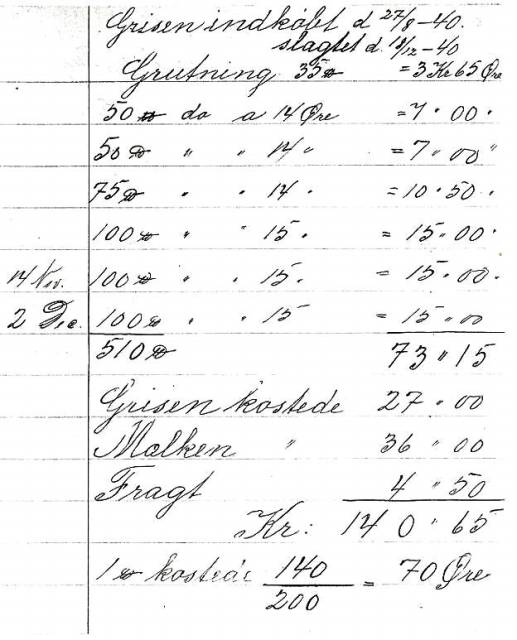 Grisen indkøbt d 27/8-40.
slagtet d. 18/12-40
Grutning 35 ℔ = 3 Kr 65 Øre
50 ℔ do a 14 Øre = 7 . 00 .
50 ℔ " " 14 " = 7 " 00 "
75 ℔ " " 14 . = 10 . 50 .
100 ℔ " " 15 . = 15 . 00 .
14 Nov. 100 ℔ " . 15 . = 15 . 00 .
2 Dec. 100 ℔ " . 15 = 15 . 00
510 ℔ 73 " 15
Grisen kostede 27 . 00
Malken " 36 " 00
Fragt 4 " 50
Kr: 140 " 65
1 ℔ kostede 140/200 = 70 Øre